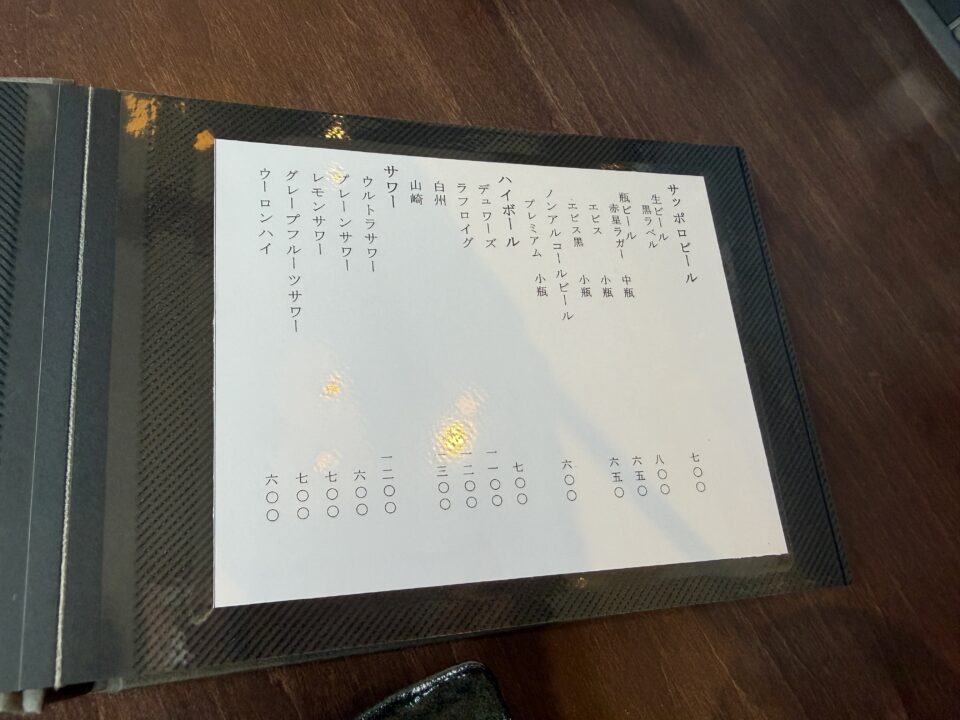 サッポロビール
生ビール
黒ラベル 七〇〇
瓶ビール
赤星ラガー 中瓶 八〇〇
エビス 小瓶 六五〇
エビス黒 小瓶 六五〇
ノンアルコールビール
プレミアム 小瓶 六〇〇
ハイボール
デュワーズ 七〇〇
ラフロイグ 一一〇〇
白州 一二〇〇
山崎 一三〇〇
サワー
ウルトラサワー 一二〇〇
プレーンサワー 六〇〇
レモンサワー 七〇〇
グレープフルーツサワー 七〇〇
ウーロンハイ 六〇〇